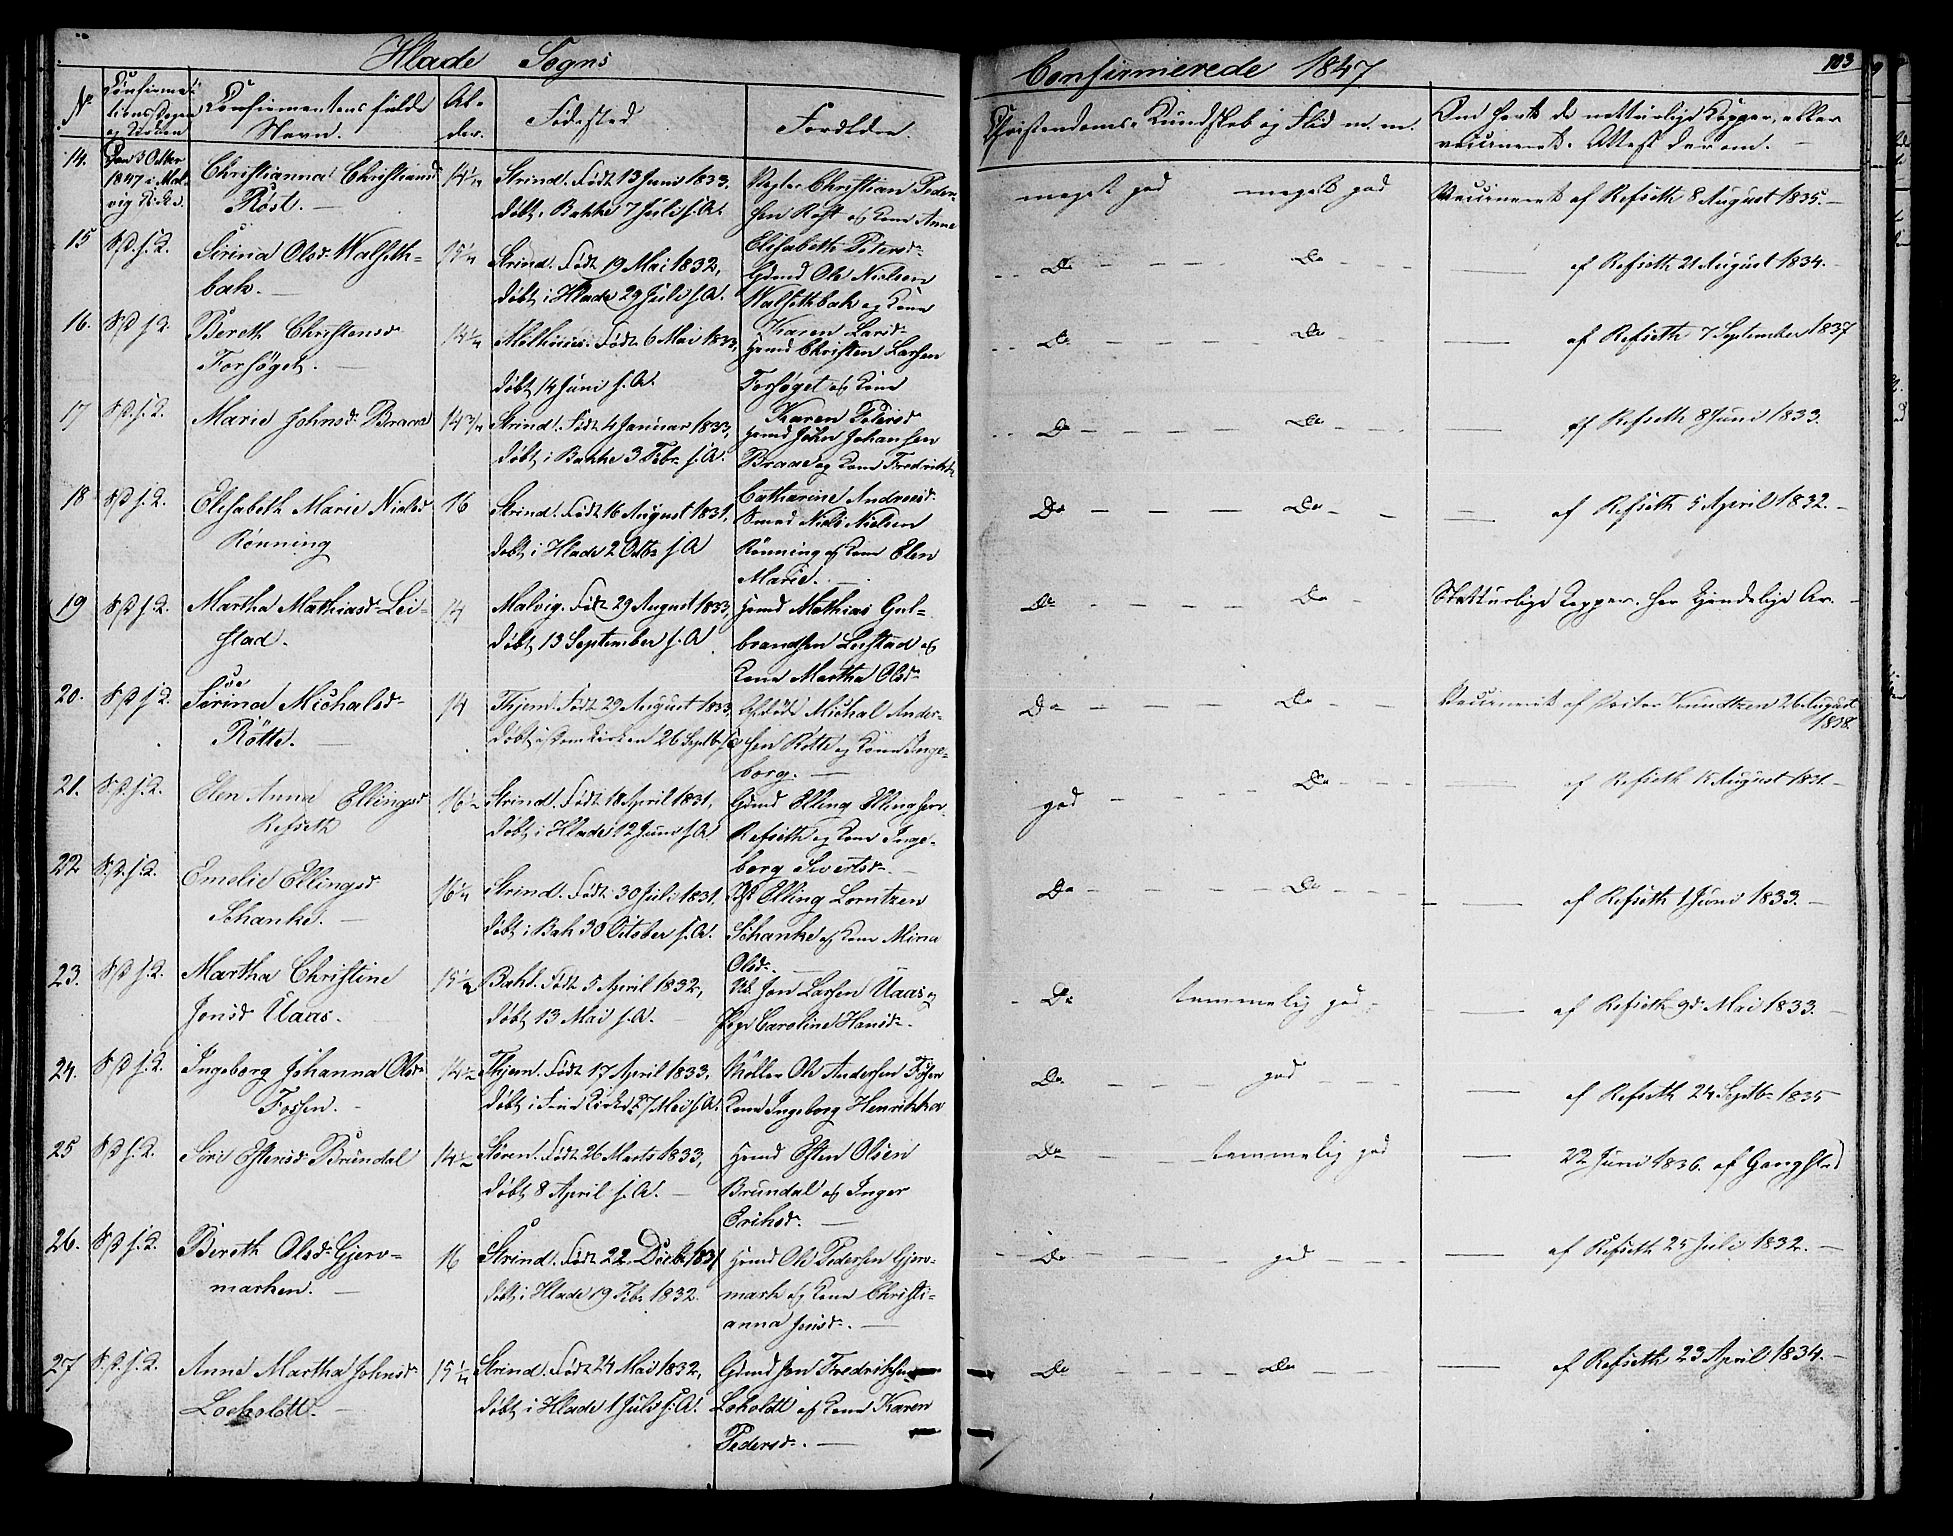 Hlade Sogns
Confirmerede 1847
103
No
Confirma-
tions Dagen
og Stedet
Confirmantens fulde
Navn.
Al-
der.
Fødested
Forældre
Christendoms-Kundskab og Flid m. m.
Om havt de naturlige Kopper, eller
vaccineret. Attest derom.
14.
Den 3 Octbr
1847 i Mal-
vig Kirke.
Christianna Christiansd
Røst.
14 1/4
Strind. Født 13 Juni 1833.
døbt. Bakke 7 Juli s. A.
Christian Peder-
sen Røst og Kone Anne
Elisabeth Petersd
meget god meget god
Vaccineret af Refseth 8 August 1835.
15
S. D. s. K.
Sirina Olsd Walseth-
bak.
15 1/4
Strind. Født 19 Mai 1832,
døbt i Hlade 29 Juli s. A.
Gmd Ole Nielsen
Walsethbak og Kone
Karen Larsd
Do Do
af Refseth 21 August 1834.
16.
S. D. s. K.
Bereth Christensd
Forsøget.
14 1/4
Født 6 Mai 1833,
døbt 14 Juni s. A.
Hmd Christen Larsen
Forsøget og Kone
Karen Petersd
Do Do
af Refseth 7 September 1837
17
S. D. s. K.
Marie Johnsd Braae
14 3/4
Strind. Født 4 Januar 1833,
døbt i Bakke 3 Febr s. A.
Hmd John Johansen
Braae og Kone Fredrikke
Catharine Andreasd
Do Do
af Refseth 8 Juni 1833.
18
S. D. s. K.
Elisabeth Marie Nielsd
Rønning
16
Strind. Født 16 August 1831,
døbt i Hlade 2 Octbr s. A
Smed Niels Nielsen
Rønning og Kone Elen
Marie.
Do Do
af Refseth 5 April 1832.
19
S. D. s. K.
Martha Mathiasd Lei-
stad.
14
Malvig. Født 29 August 1833,
døbt 13 September s. A
Hmd Mathias Gul-
brandsen Leistad og
Kone Martha Olsd
Do Do
Naturlige Kopper. Har kjendelige Ar.
20.
S. D. s. K.
Sirina Michalsd
Røtte.
14
Thjem. Født 29 August 1833,
døbt i Domkirken 26 Septbr s. A
Afdøde Michal Ander-
sen Røtte og Kone Inge-
borg.
Do Do
Vaccineret af Doctor Knudtzen 26 August
1838.
21.
S. D. s. K.
Elen Anna Ellingsd
Refseth
16 1/2
Strind. Født 18 April 1831,
døbt i Hlade 12 Juni s. A.
Gmd Elling Ellingsen
Refseth og Kone Inge-
borg Sivertsd.
god Do
af Refseth 15 August 1831.
22
S. D. s. K.
Emelie Ellingsd
Schanke.
16 1/4
Strind. Født 30 Juli 1831.
døbt i Bak 30 October s. A.
Elling Lorntzen
Schanke og Kone Mina
Olsd.
Do Do
af Refseth 1 Juni 1833.
23.
S. D. s. K.
Martha Christine
Jonsd Uaas.
15 1/2
Bakl. Født 5 April 1832,
døbt 13 Mai s. A.
Uk. Jon Larsen Uaas og
Pige Caroline Hansd.
Do temmelig god
af Refseth 9d Mai 1833.
24.
S. D. s. K.
Ingeborg Johanna Olsd
Fossen.
14 1/2
Thjem. Født 17 April 1833,
døbt i Frue Kirke 27 Mai s. A.
Møller Ole Andersen Fossen
Kone Ingeborg Henrikka
Do god
af Refseth 24 Septbr 1835
25
S. D. s. K.
Siri Estensd Brundal
14 1/2
Støren. Født 26 Marts 1833,
døbt 8 April s. A.
Hmd Esten Olsen
Brundal og Inger
Eriksd.
Do temmelig god
22 Juni 1836. af Gangstad
26.
S. D. s. K.
Bereth Olsd Gjerv-
marken.
16
Strind. Født 22 Decbr 1831
døbt i Hlade 19 Febr 1832.
Hmd Ole Pedersen Gjerv-
mark og Kone Christi-
anna Jonsd.
Do god
af Refseth 25 Juli 1832.
27
S. D. s. K.
Anne Martha Johnsd
Loeholdt.
15 1/4
Strind. Født 24 Mai 1832,
døbt i Hlade 1 Juli s. A.
Gmd Jon Fredriksen
Loholdt og Kone Karen
Pedersd.
Do Do
af Refseth 23 April 1834.